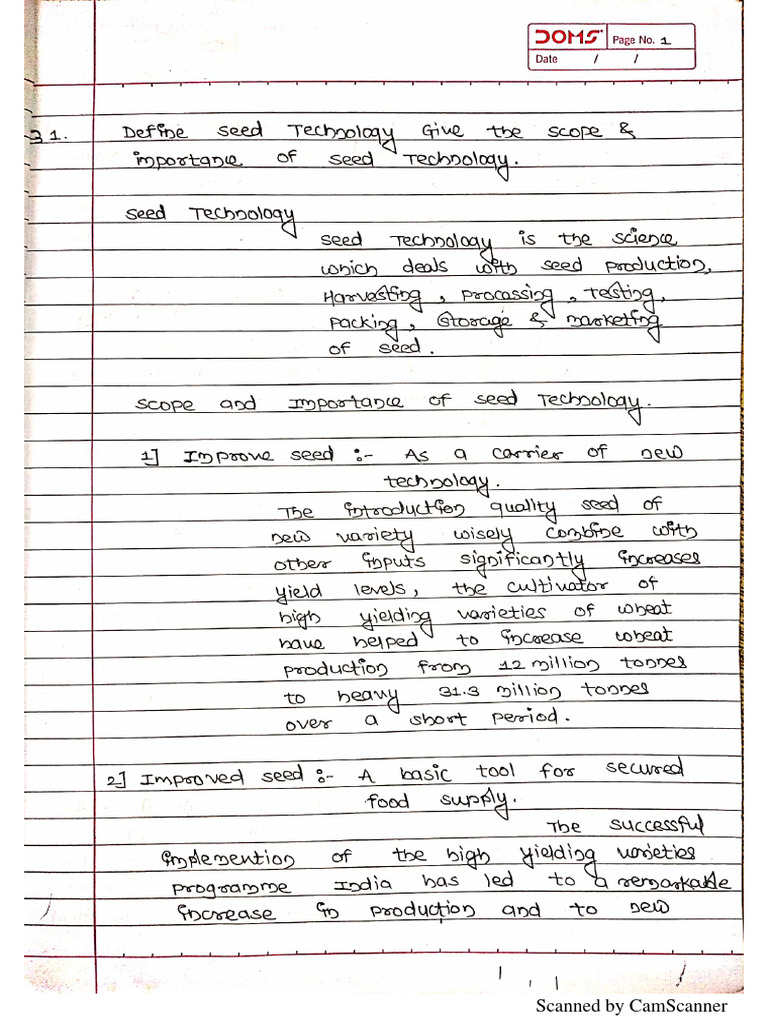 DOMS Page No. 1
Date / /
31. Define seed Technology Give the scope &
importance of seed Technology.
Seed Technology
seed Technology is the science
which deals with seed production,
Harvesting, processing, testing,
packing, storage & marketing
of seed.
Scope and Importance of seed Technology.
1] Improve seed :- As a carrier of new
technology.
The introduction quality seed of
new variety wisely combine with
other inputs significantly increases
yield levels, the cultivator of
high yielding varieties of wheat
have helped to increase wheat
production from 12 million tonnes
to heavy 31.3 million tonnes
over a short period.
2] Improved seed :- A basic tool for secured
food supply.
The successful
implemention of the high yielding varieties
programme India has led to a remarkable
increase in production and to new
Scanned by CamScanner